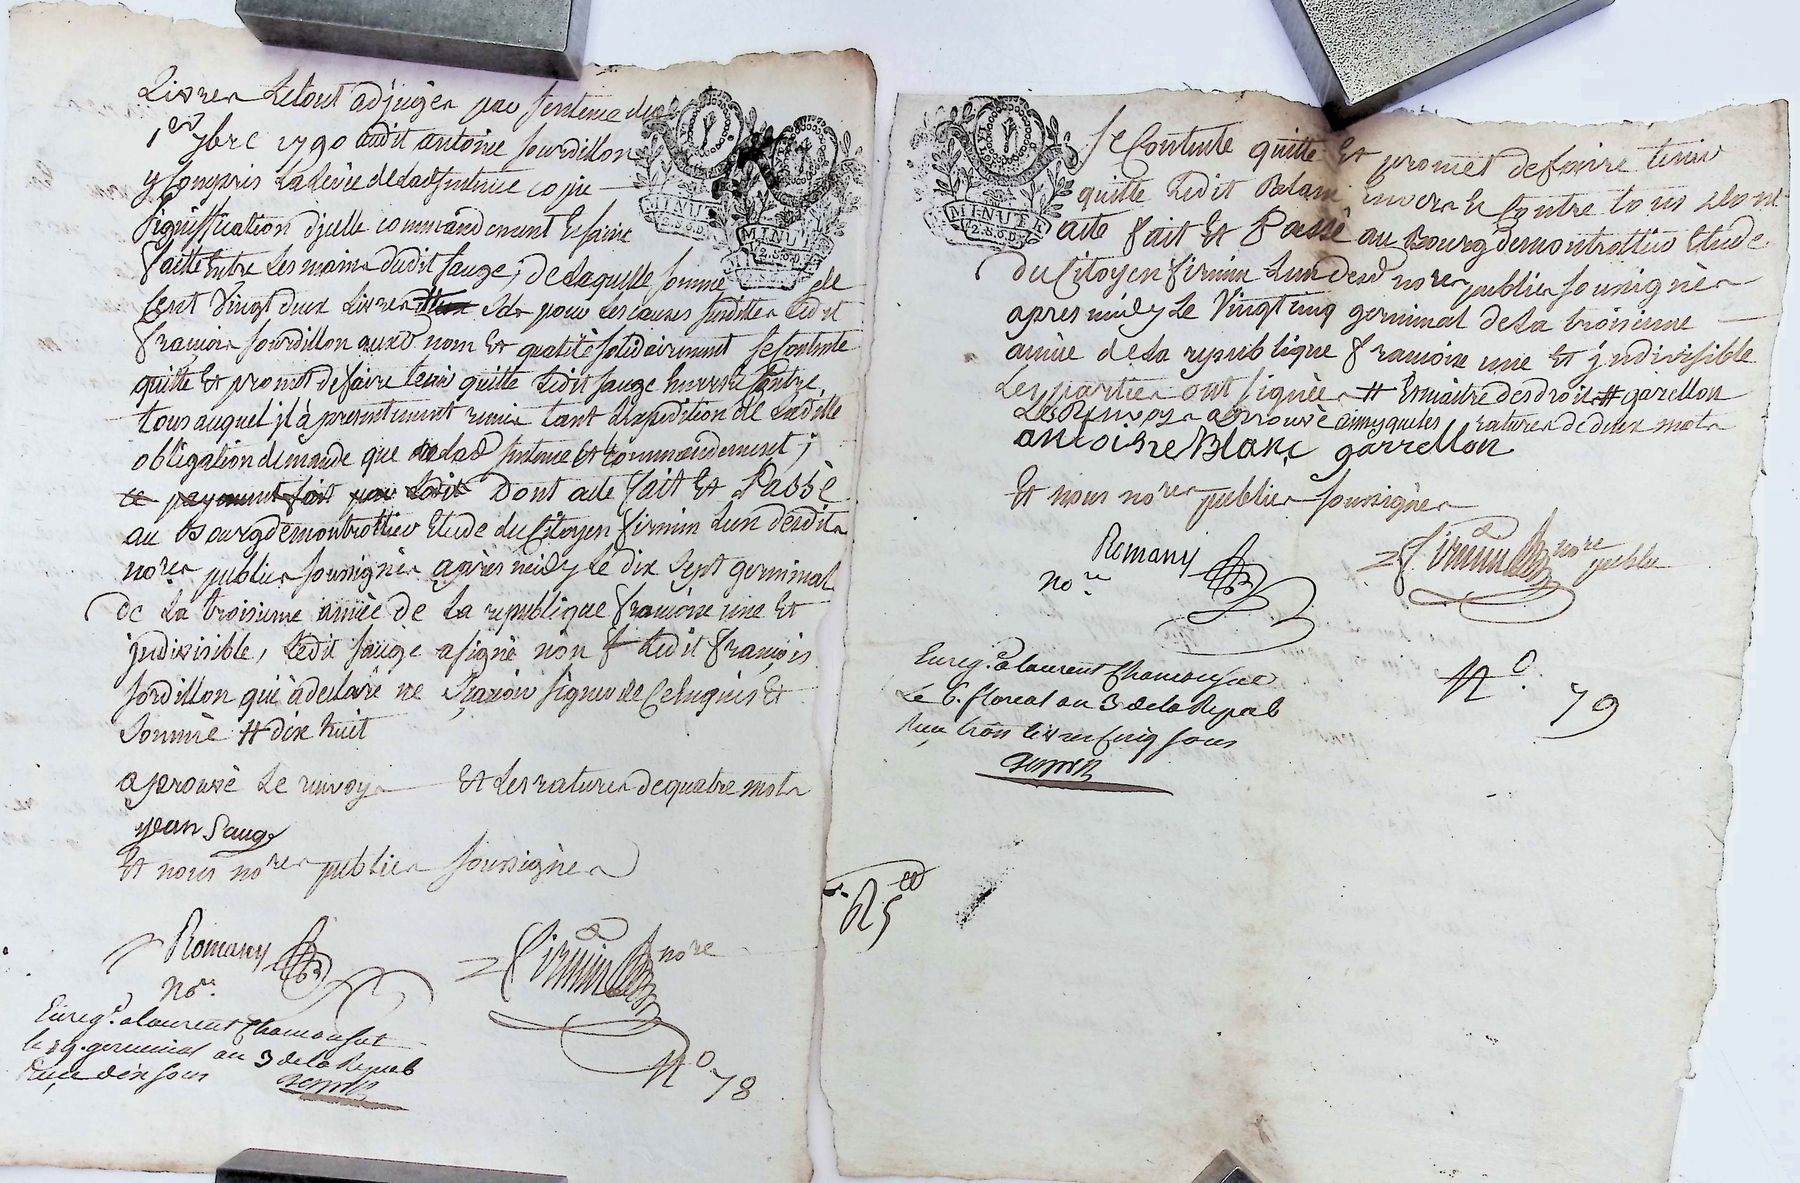 Livres Letout adjugés par sentence du
1er 7bre 1790 audit antoine sourdillon
y Compris La Levée de Ladte sentence copie
signiffication djcelle commandement
faitte Entre Les mains dudit sauge, de Laquelle somme de
Cent Vingt deux Livres pour Les causes susdittes Ledit
francois sourdillon auxd nom Et qualité solidairement se Contente
quitte Et promet defaire tenir quitte Ledit sauge Envers Et Contre
tous auquel jl à presentement remis tant Lexpedition de Laditte
obligation demande que Lad sentence Et commandement,
ce payement fait par Ledit Dont acte fait Et Passé
au Bourg demontrottier Etude du Citoyen firmin Lun desdits
nores publics soussignés après midy Le dix sept germinal
de La troisieme année de La republique francoise une Et
jndivisible, Ledit sauge a signé non Ledit françois
sordillon qui à declaré ne scavoir signer de Ce Enquis Et
sommé # dix huit
aprouvé Le renvoy Et Les ratures de quatre mots
jean Sauge
Et nous nores publics soussignés
Romany nore
firmin nore
Enregé a laurent Chamousset
le 29 germinal an 3 de la Repub
Reçu dix sous
No 78
MINUT
2.S.6.D.
MINUT
2.S.6.D.
se Contente quitte Et promet defaire tenir
quitte Ledit Blanc Envers Et Contre tous Dont
acte fait Et Passé au Bourg demontrottier Etude
du Citoyen firmin Lun desd nores publics soussignés
apres midy Le Vingt cinq germinal de La troisieme
année de La republique francoise une Et jndivisible
Les parties ont signées # Et maitre des droits # garellon
Les Renvoys aprouvé ainsy que les ratures de deux mots
antoine Blanc garrellon
Et nous nores publics soussignés
Romany nore
firmin nore public
Enregé a laurent Chamousset
Le 6. floreal an 3 de la Repub
Reçu trois livres Cinq sous
No. 79
MINUT
2.S.6.D.